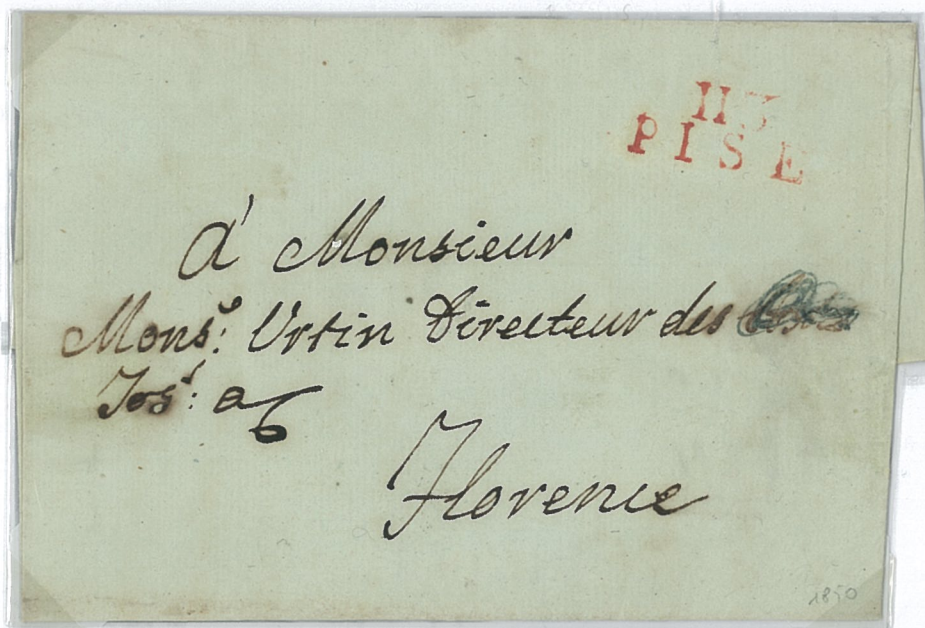 113
PISE
à Monsieur
Monsr: Ursin Directeur des
Jos: a
6
Florence
1810